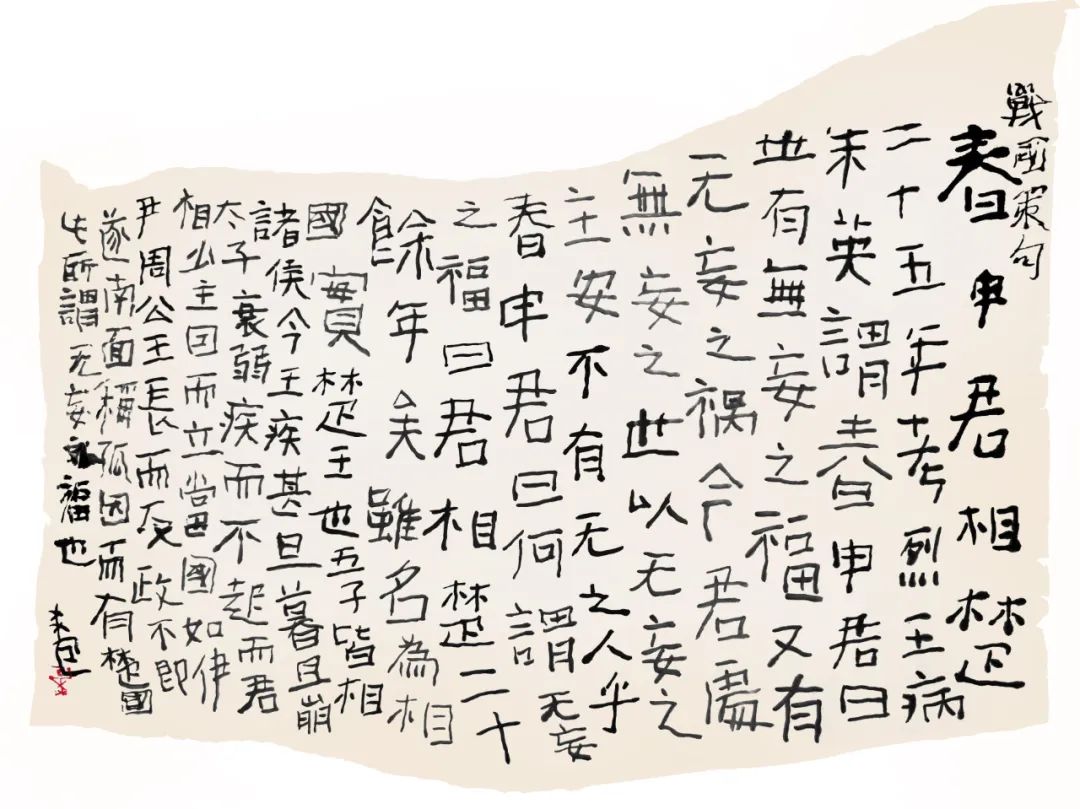 戰國策句
春申君相楚
二十五年考烈王病
朱英謂春申君曰
世有無妄之福又有
无妄之祸今君處
無妄之世以无妄之
主安不有无之人乎
春申君曰何謂无妄
之福曰君相楚二十
餘年矣雖名為相
國實楚王也五子皆相
諸侯今王疾甚旦暮且崩
太子衰弱疾而不起而君
相少主因而立當國如伊
尹周公王長而反政不即
遂南面稱孤因而有楚國
此所謂无妄福也